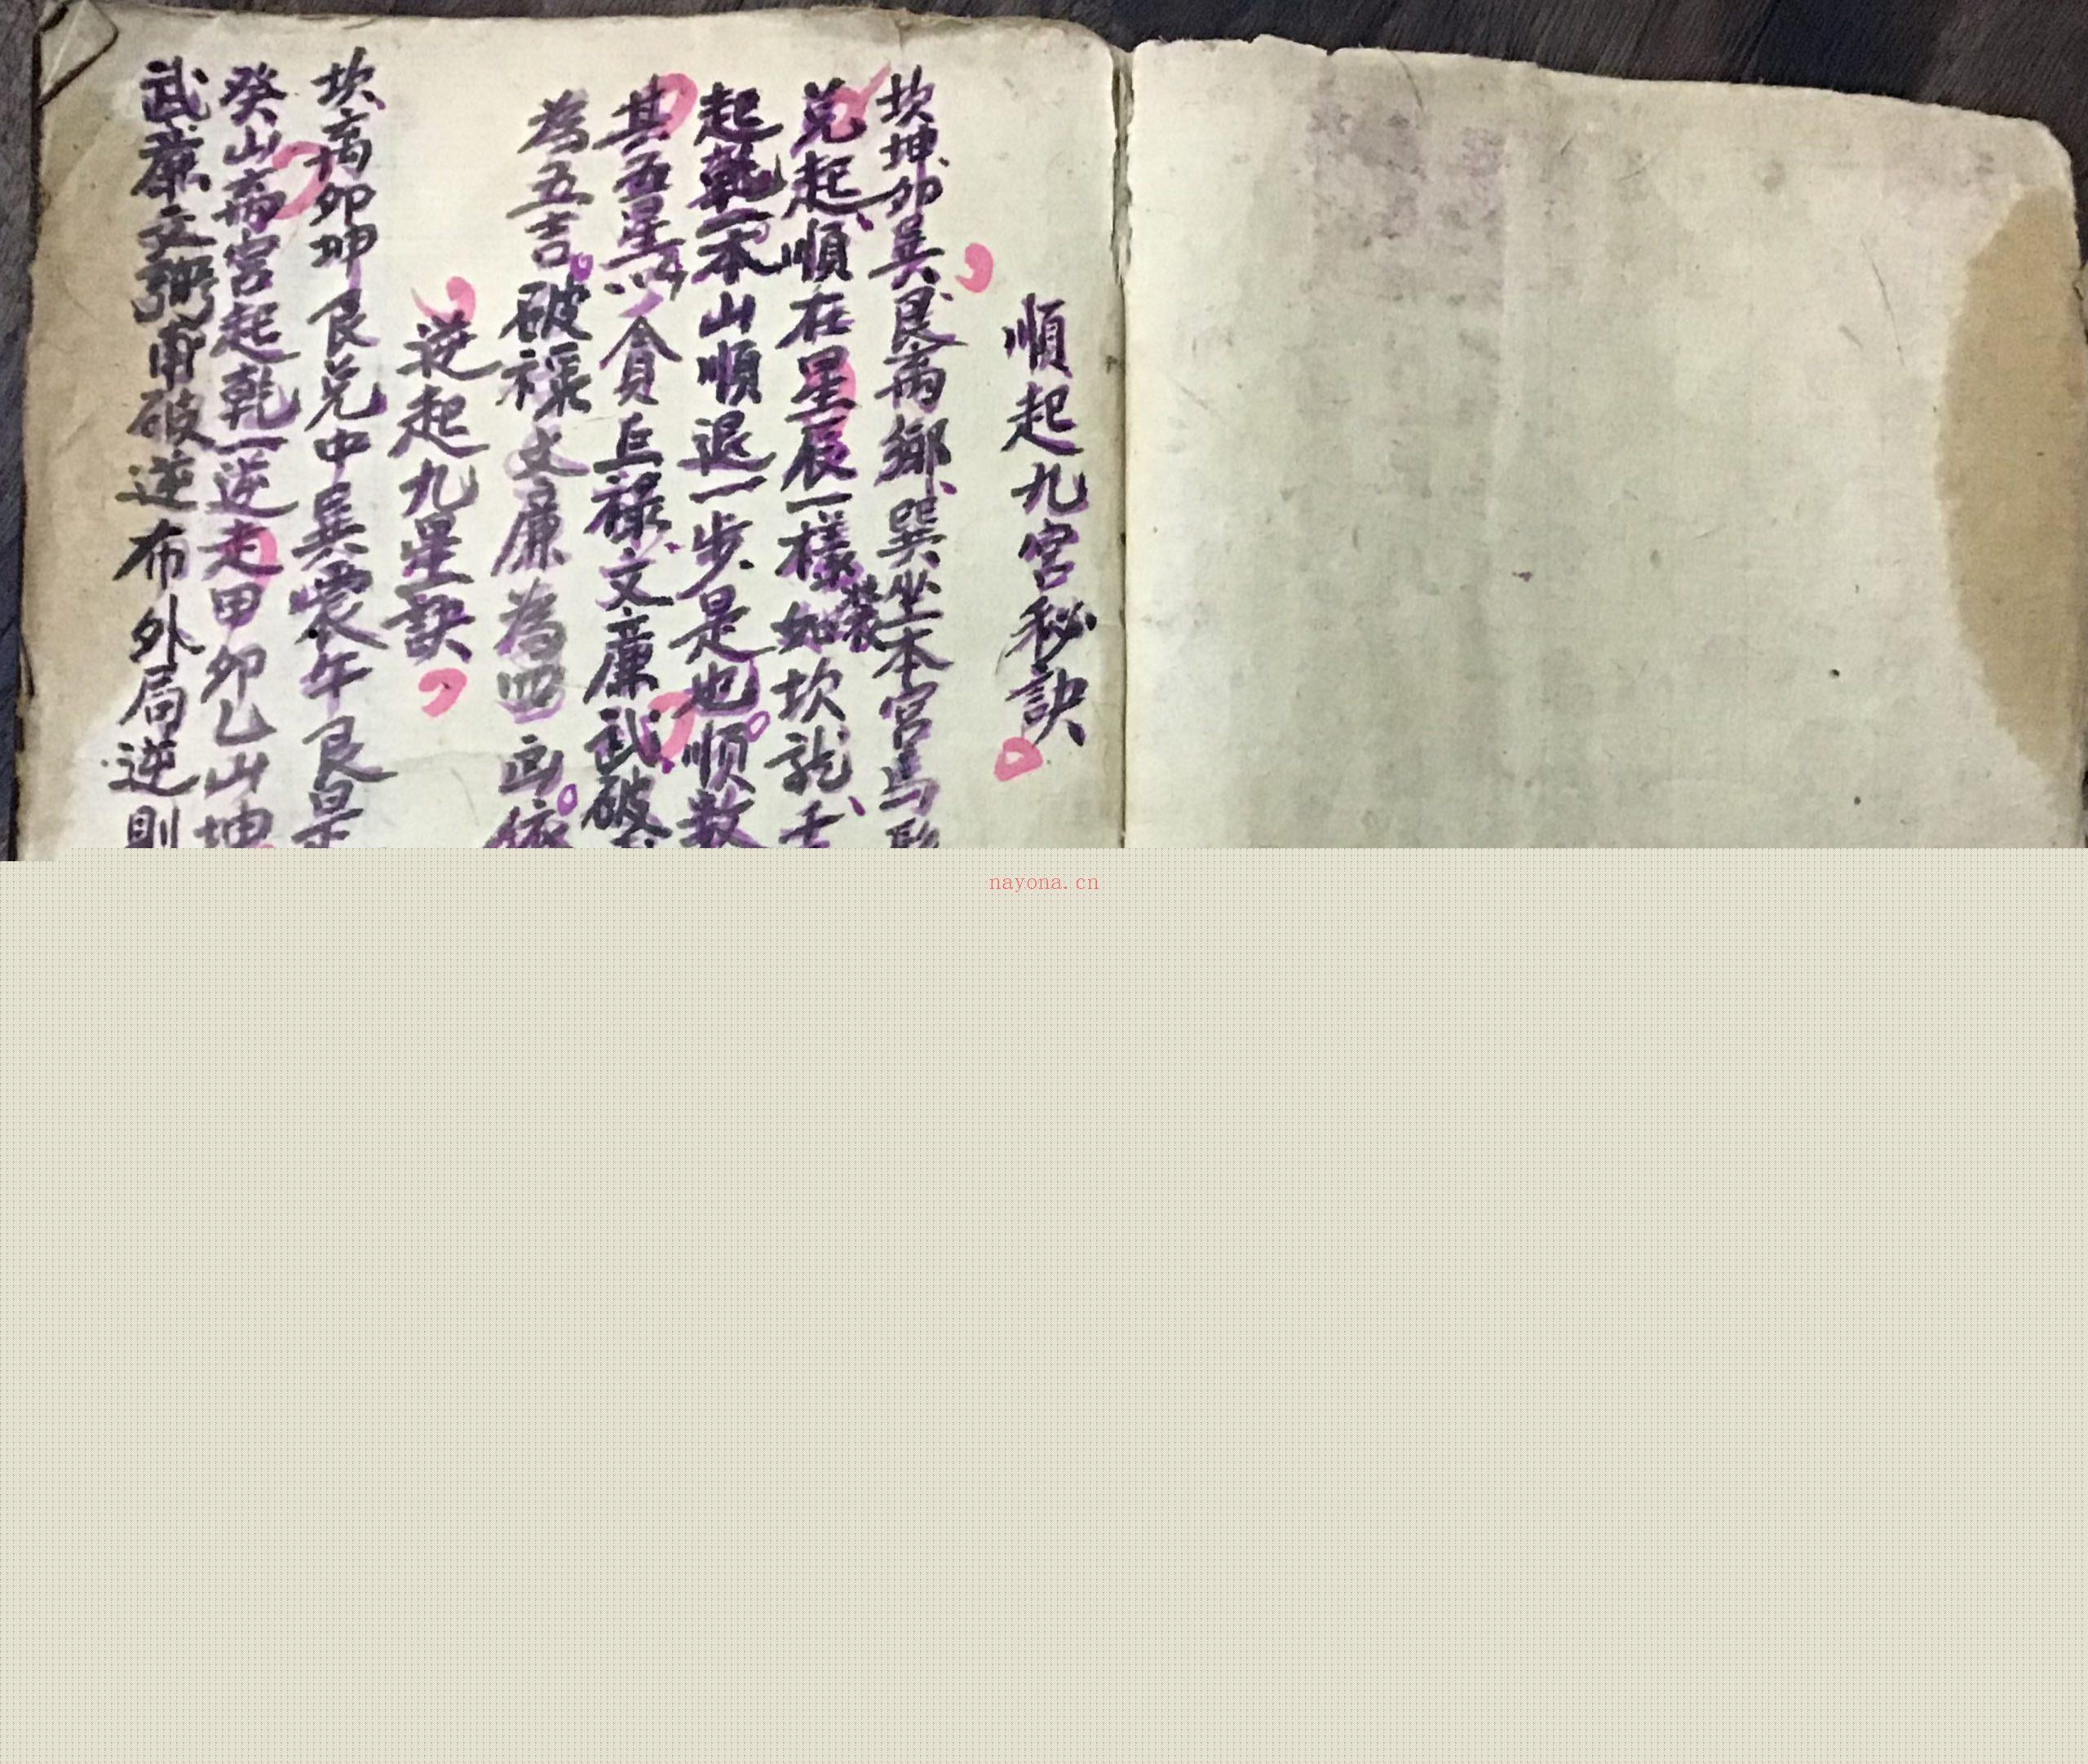 順起九宮秘訣
坎坤卯巽艮离鄉巽坐本宮馬
兌起順在星辰一樣裝如坎龍壬
起乾一本山順退一步是也顺数
其五星以貪巨禄文廉武破
為五吉破禄文廉為四凶依
逆起九星訣
坎离卯坤艮兌中巽震午艮是
癸山离宮起乾一逆走甲卯乙山坤
武廉文弼甫破逆布外局逆則
nayona.cn